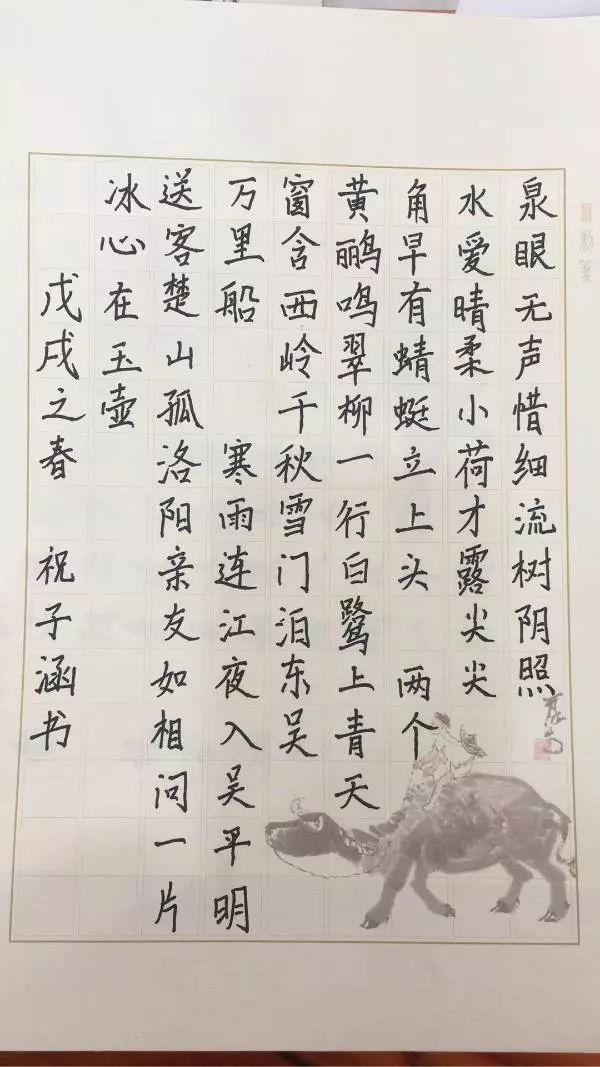 泉眼无声惜细流树阴照
水爱晴柔小荷才露尖尖
角早有蜻蜓立上头 两个
黄鹂鸣翠柳一行白鹭上青天
窗含西岭千秋雪门泊东吴
万里船 寒雨连江夜入吴平明
送客楚山孤洛阳亲友如相问一片
冰心在玉壶
戊戌之春 祝子涵书